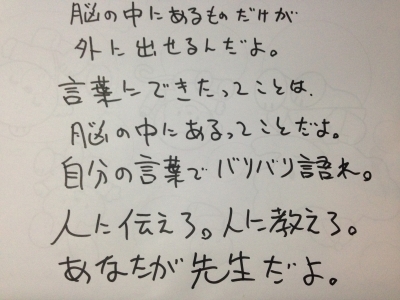 脳の中にあるものだけが
外に出せるんだよ。
言葉にできたってことは、
脳の中にあるってことだよ。
自分の言葉でバリバリ語れ。
人に伝えろ。人に教えろ。
あなたが先生だよ。